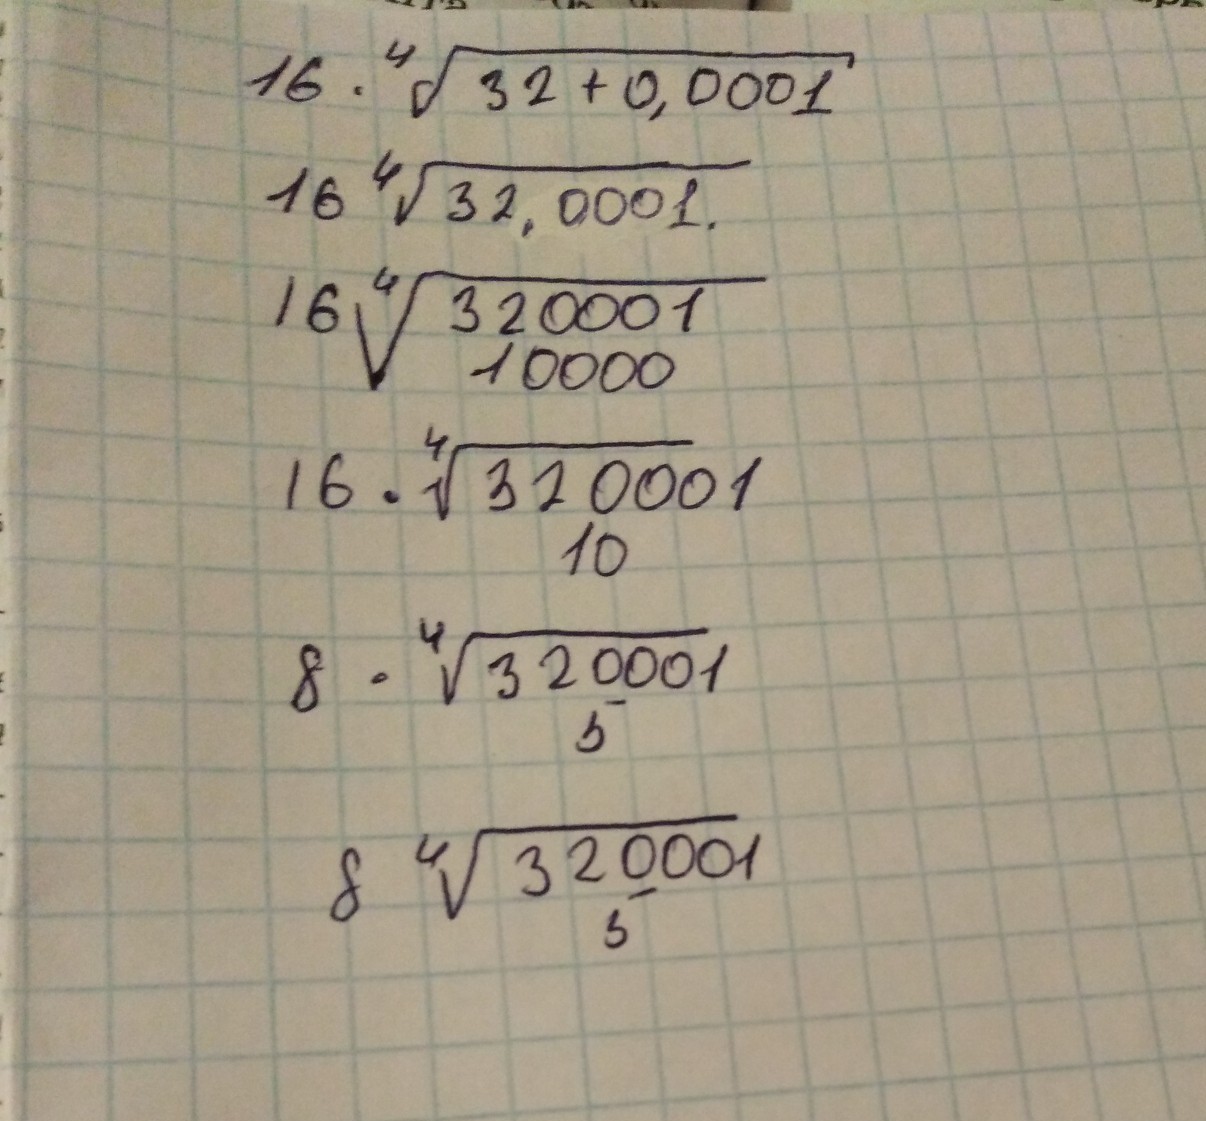 16 · ⁴√32 + 0,0001
16 ⁴√32,0001.
16 ⁴√320001
10000
16 · ⁴√320001
10
8 · ⁴√320001
5
8 ⁴√320001
5